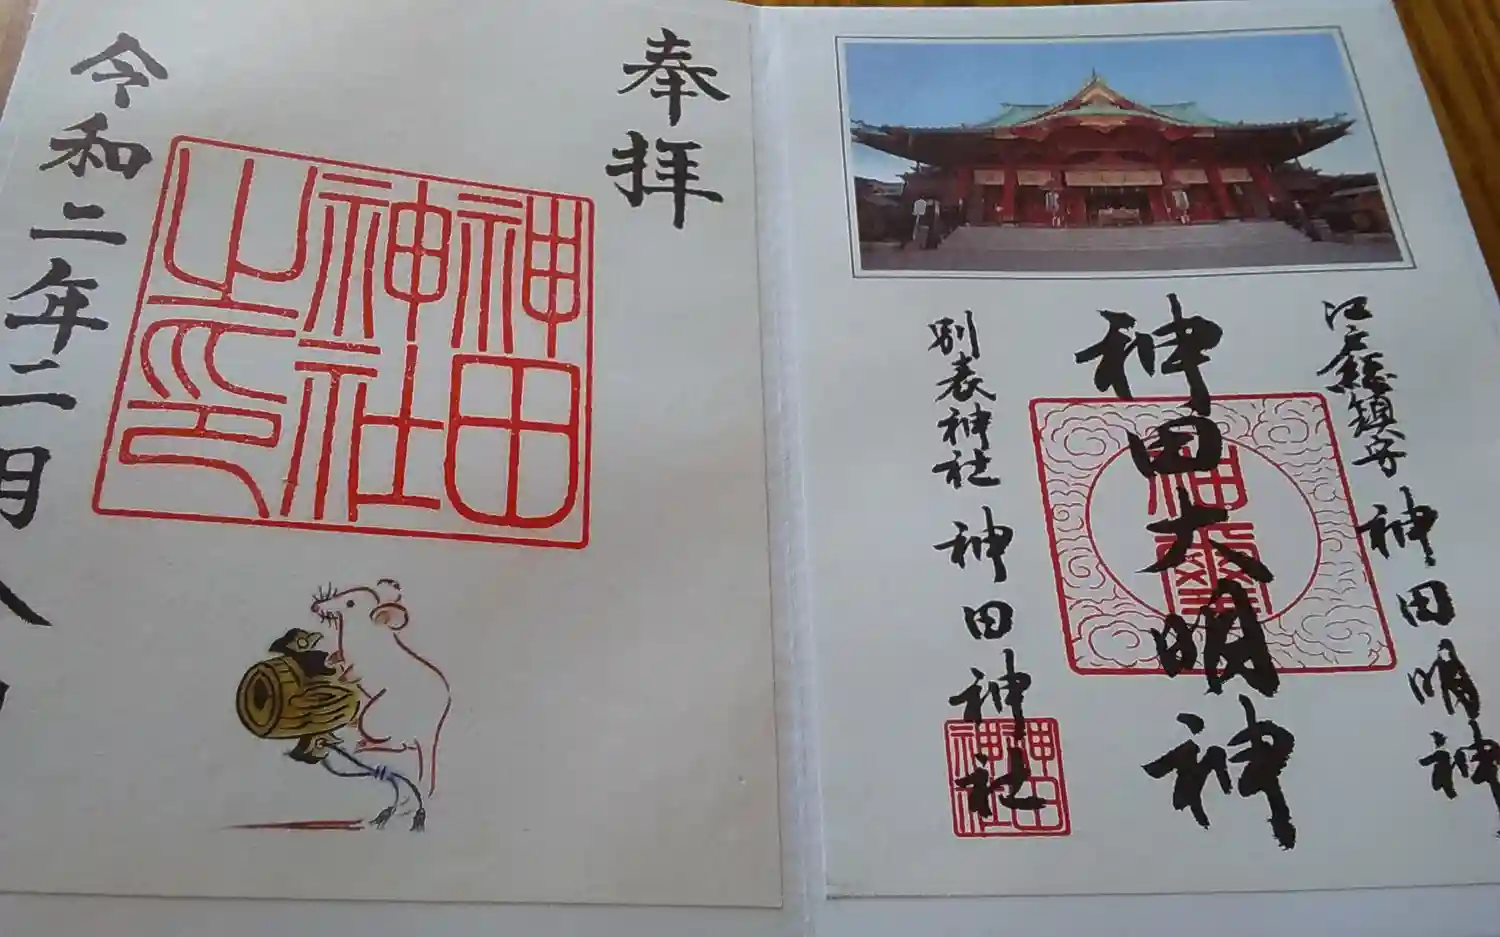 江戸総鎮守 神田明神
神田大明神
別表神社 神田神社
神田
神社
奉拝
神田
神社
之印
令和二年二月八日